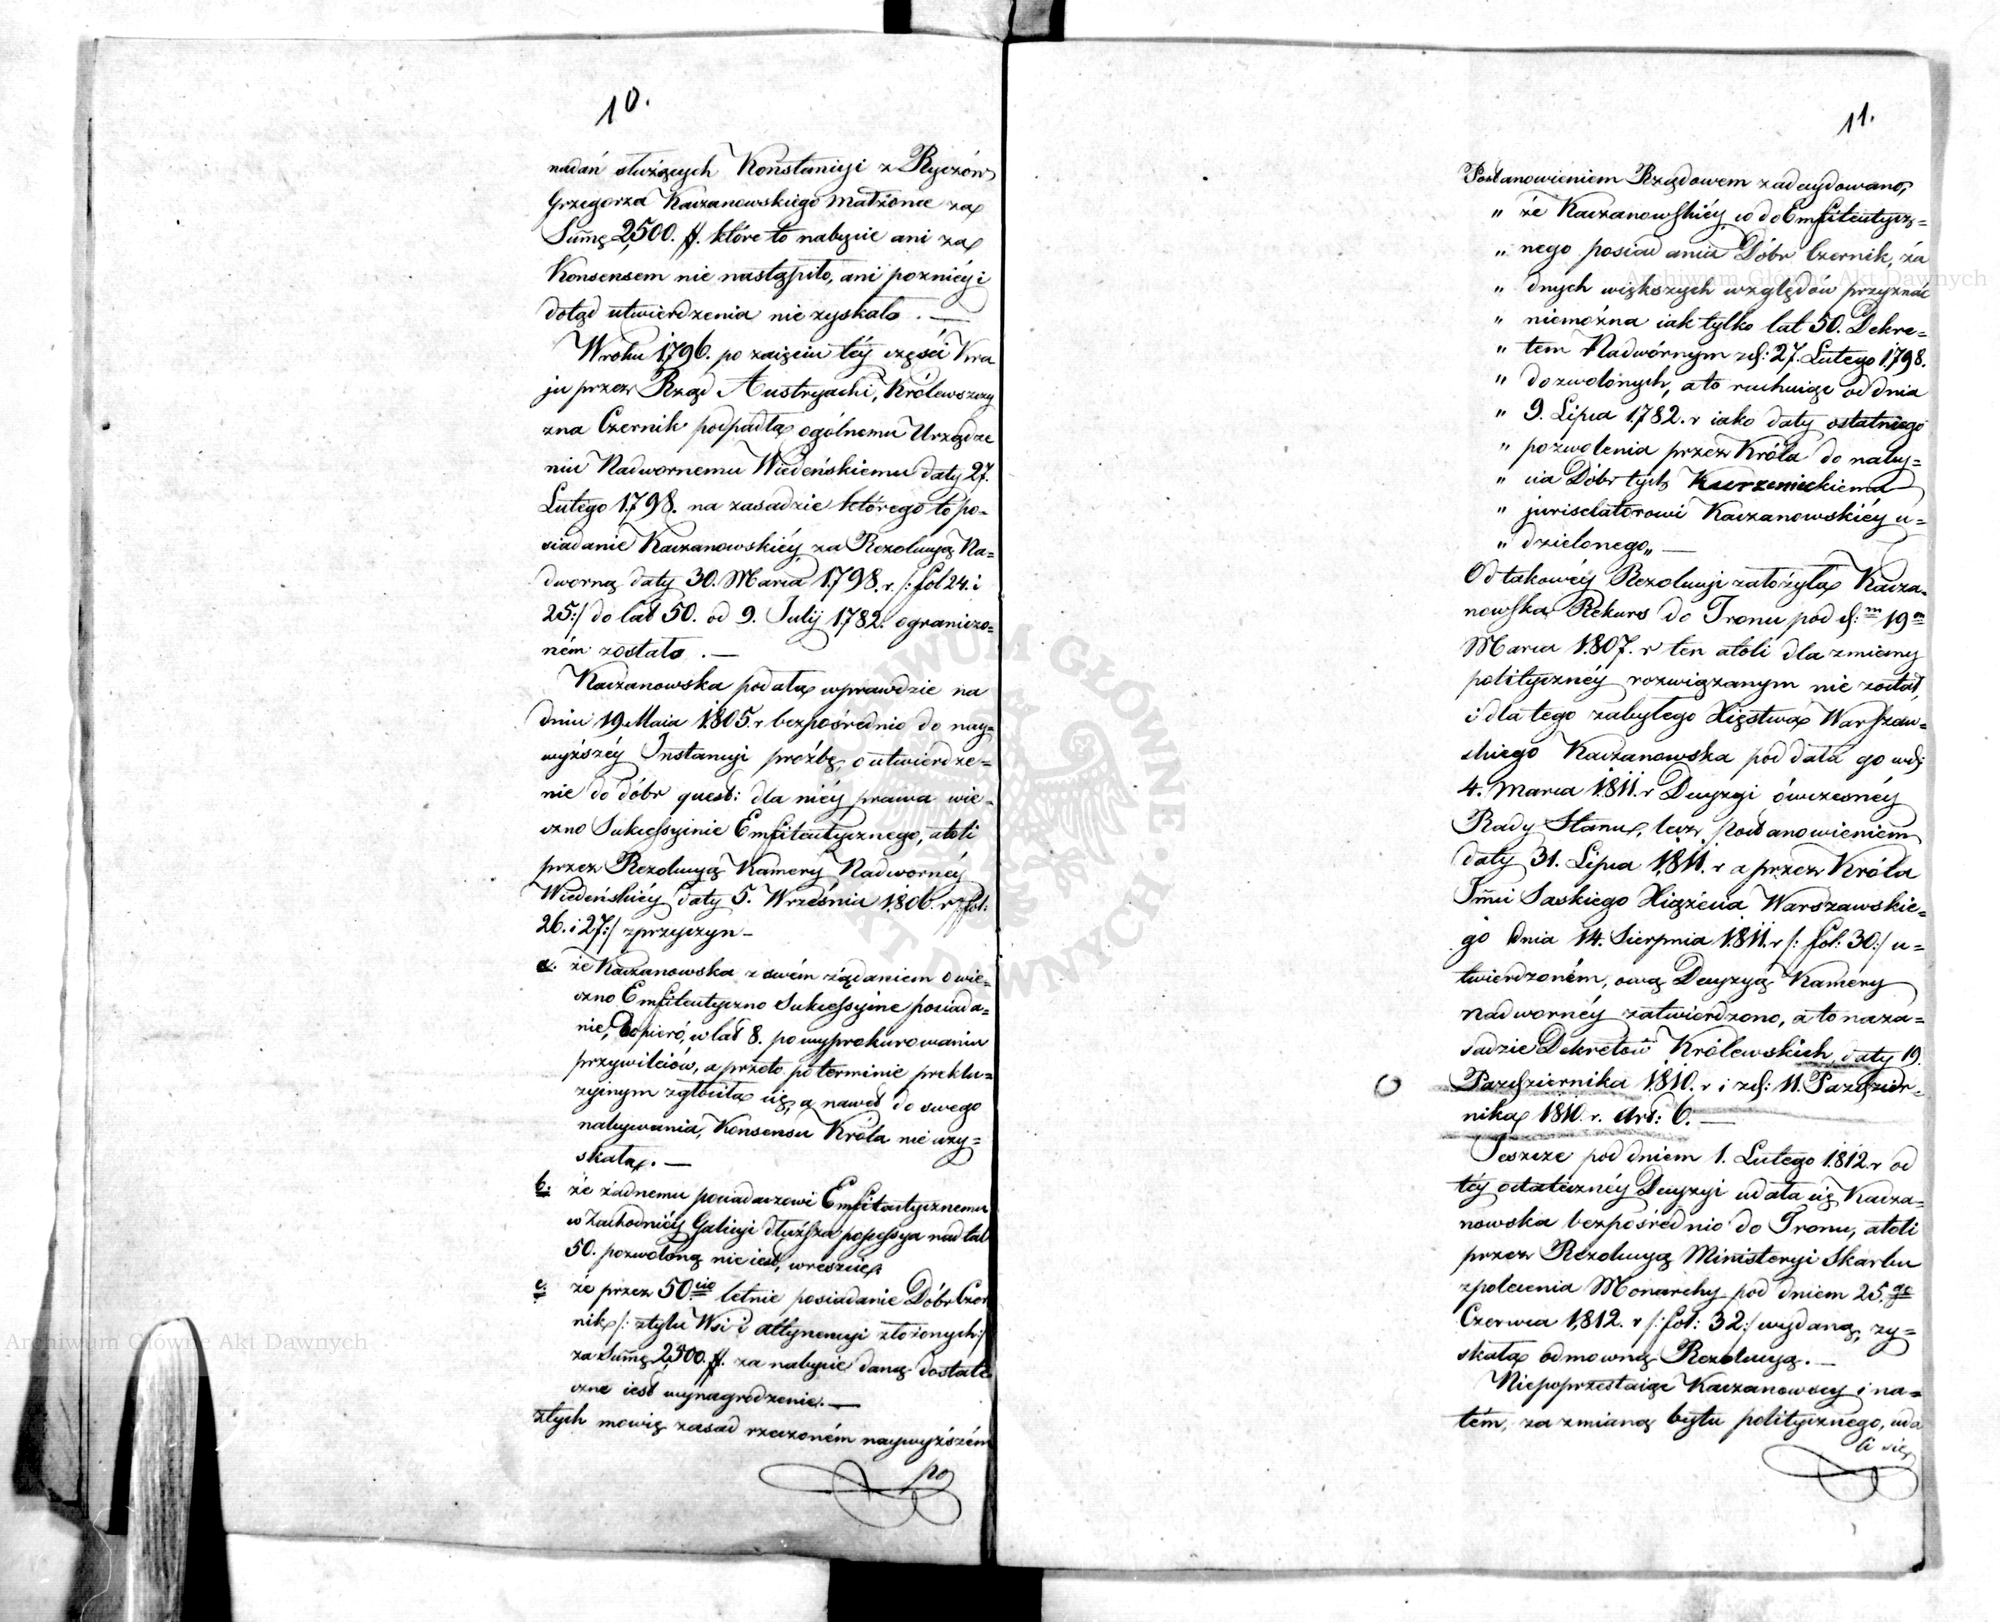 10.
nadań służących Konstancyi z Ryczów
Grzegorza Kaczanowskiego Małżonce za
Sum̄ę 2,500. ff. które to nabycie ani za
Konsensem nie nastąpiło, ani poznièy i
dotąd utwierdzenia nie zyskało. —
W roku 1796. po zaięciu téy części Kra
ju przez Rząd Austryacki, Królewszczy
zna Czernik podpadła ogólnemu Urządze
niu Nadwornemu Wiedeńskiemu daty 27.
Lutego 1798. na zasadzie którego to po-
siadanie Kaczanowskiéy za Rezolucyą Na-
dworną daty 30. Marca 1798. r. /: fol 24. i
25:/ do lat 50. od 9. Julij 1782. ograniczo-
ném zostało. —
Kaczanowska podała wprawdzie na
dniu 19 Maia 1805. r bezpośrednio do nay-
wyższéy Instancyi proźbę, o utwierdze-
nie do dóbr quest: dla niéy prawa wie-
czno Sukcessyinie Emfiteutycznego, atoli
przez Rezolucyą Kamery Nadwornéy
Wiedeńskiéy daty 5. Września 1806. r /: fol:
26. i 27:/ z przyczyn –
a. że Kaczanowska z swém żądaniem o wie-
czno Emfiteutyczno Sukcessyine posiada-
nie, dopiero, w lat 8. po wyprokurowaniu
przywileiów, a przeto po terminie preklu-
zyinym zgłosiła się, a nawet do swego
nabywania, Konsensu Króla nie uzy-
skała. —
b. że żadnemu posiadaczowi Emfiteutycznemu
w Zachodniéy Galicyi dłuższa possessya nad lat
50. pozwoloną nie iest, wreszcie
c. że przez 50cio letnie posiadanie Dóbr Czer
nik /: z tylu Wsi i attynencyi złożonych :/
za Sum̄ę 2,500. ff. za nabycie daną dostate
czne iest wynagrodzenie. —
z tych mowię zasad rzeczoném naywyższém
po
11.
Postanowieniem Rządowem zadecydowano,
„ że Kaczanowskiéy, w do Emfiteutycz-
„ nego posiadania Dóbr Czernik, ża
„ dnych większych względow przyznać
„ niemożna iak tylko lat 50. Dekre-
„ tem Nadwórnym zd: 27. Lutego 1798.
„ dozwolonych, a to rachuiąc od dnia
„ 9. Lipca 1782. r iako daty ostatniego
„ pozwolenia przez Króla do naby-
„ cia Dóbr tych Kurzenieckiemu
„ juriscłatorowi Kaczanowskiéy u-
„ dzielonego„ —
Od takowéy Rezolucyi założyła Kacza-
nowska Rekurs do Tronu pod d:m 19m
Marca 1807. r ten atoli dla zmiany
polityczney rozwiązanym nie został,
i dla tego za byłego Xięstwa Warszaw-
skiego Kaczanowska pod data go wdj
4. Marca 1811. r Decyzyi ówczesnéy
Rady Stanu, lecz postanowieniem
daty 31. Lipca 1811. r a przez Króla
Jm̄ci Saskiego Xiążęcia Warszawskie-
go dnia 14. Sierpnia 1811. r /: fol: 30:/ u-
twierdzoném, ową Decyzyą Kamery
nadwornéy zatwierdzono, a to na za-
sadzie Dekretow Królewskich, daty 19.
Paździérnika 1810. r i zd: 11. Paździer-
nika 1810. r. Art: 6. —
Jeszcze pod dniem 1. Lutego 1812. r od
téy ostatecznéy Decyzyi udała się Kacza-
nowska bezpośrednio do Tronu, atoli
przez Rezolucyą Ministeryi Skarbu
z polecenia Monarchy pod dniem 25.go
Czerwca 1812. r /: fol: 32:/ wydaną, zy-
skała odmowną Rezolucyą. —
Niepoprzestaiąc Kaczanowscy i na-
tém, za zmianą bytu politycznego, uda
li się
Archiwum Główne Akt Dawnych
Archiwum Główne Akt Dawnych
ARCHIWUM GŁÓWNE AKT DAWNYCH